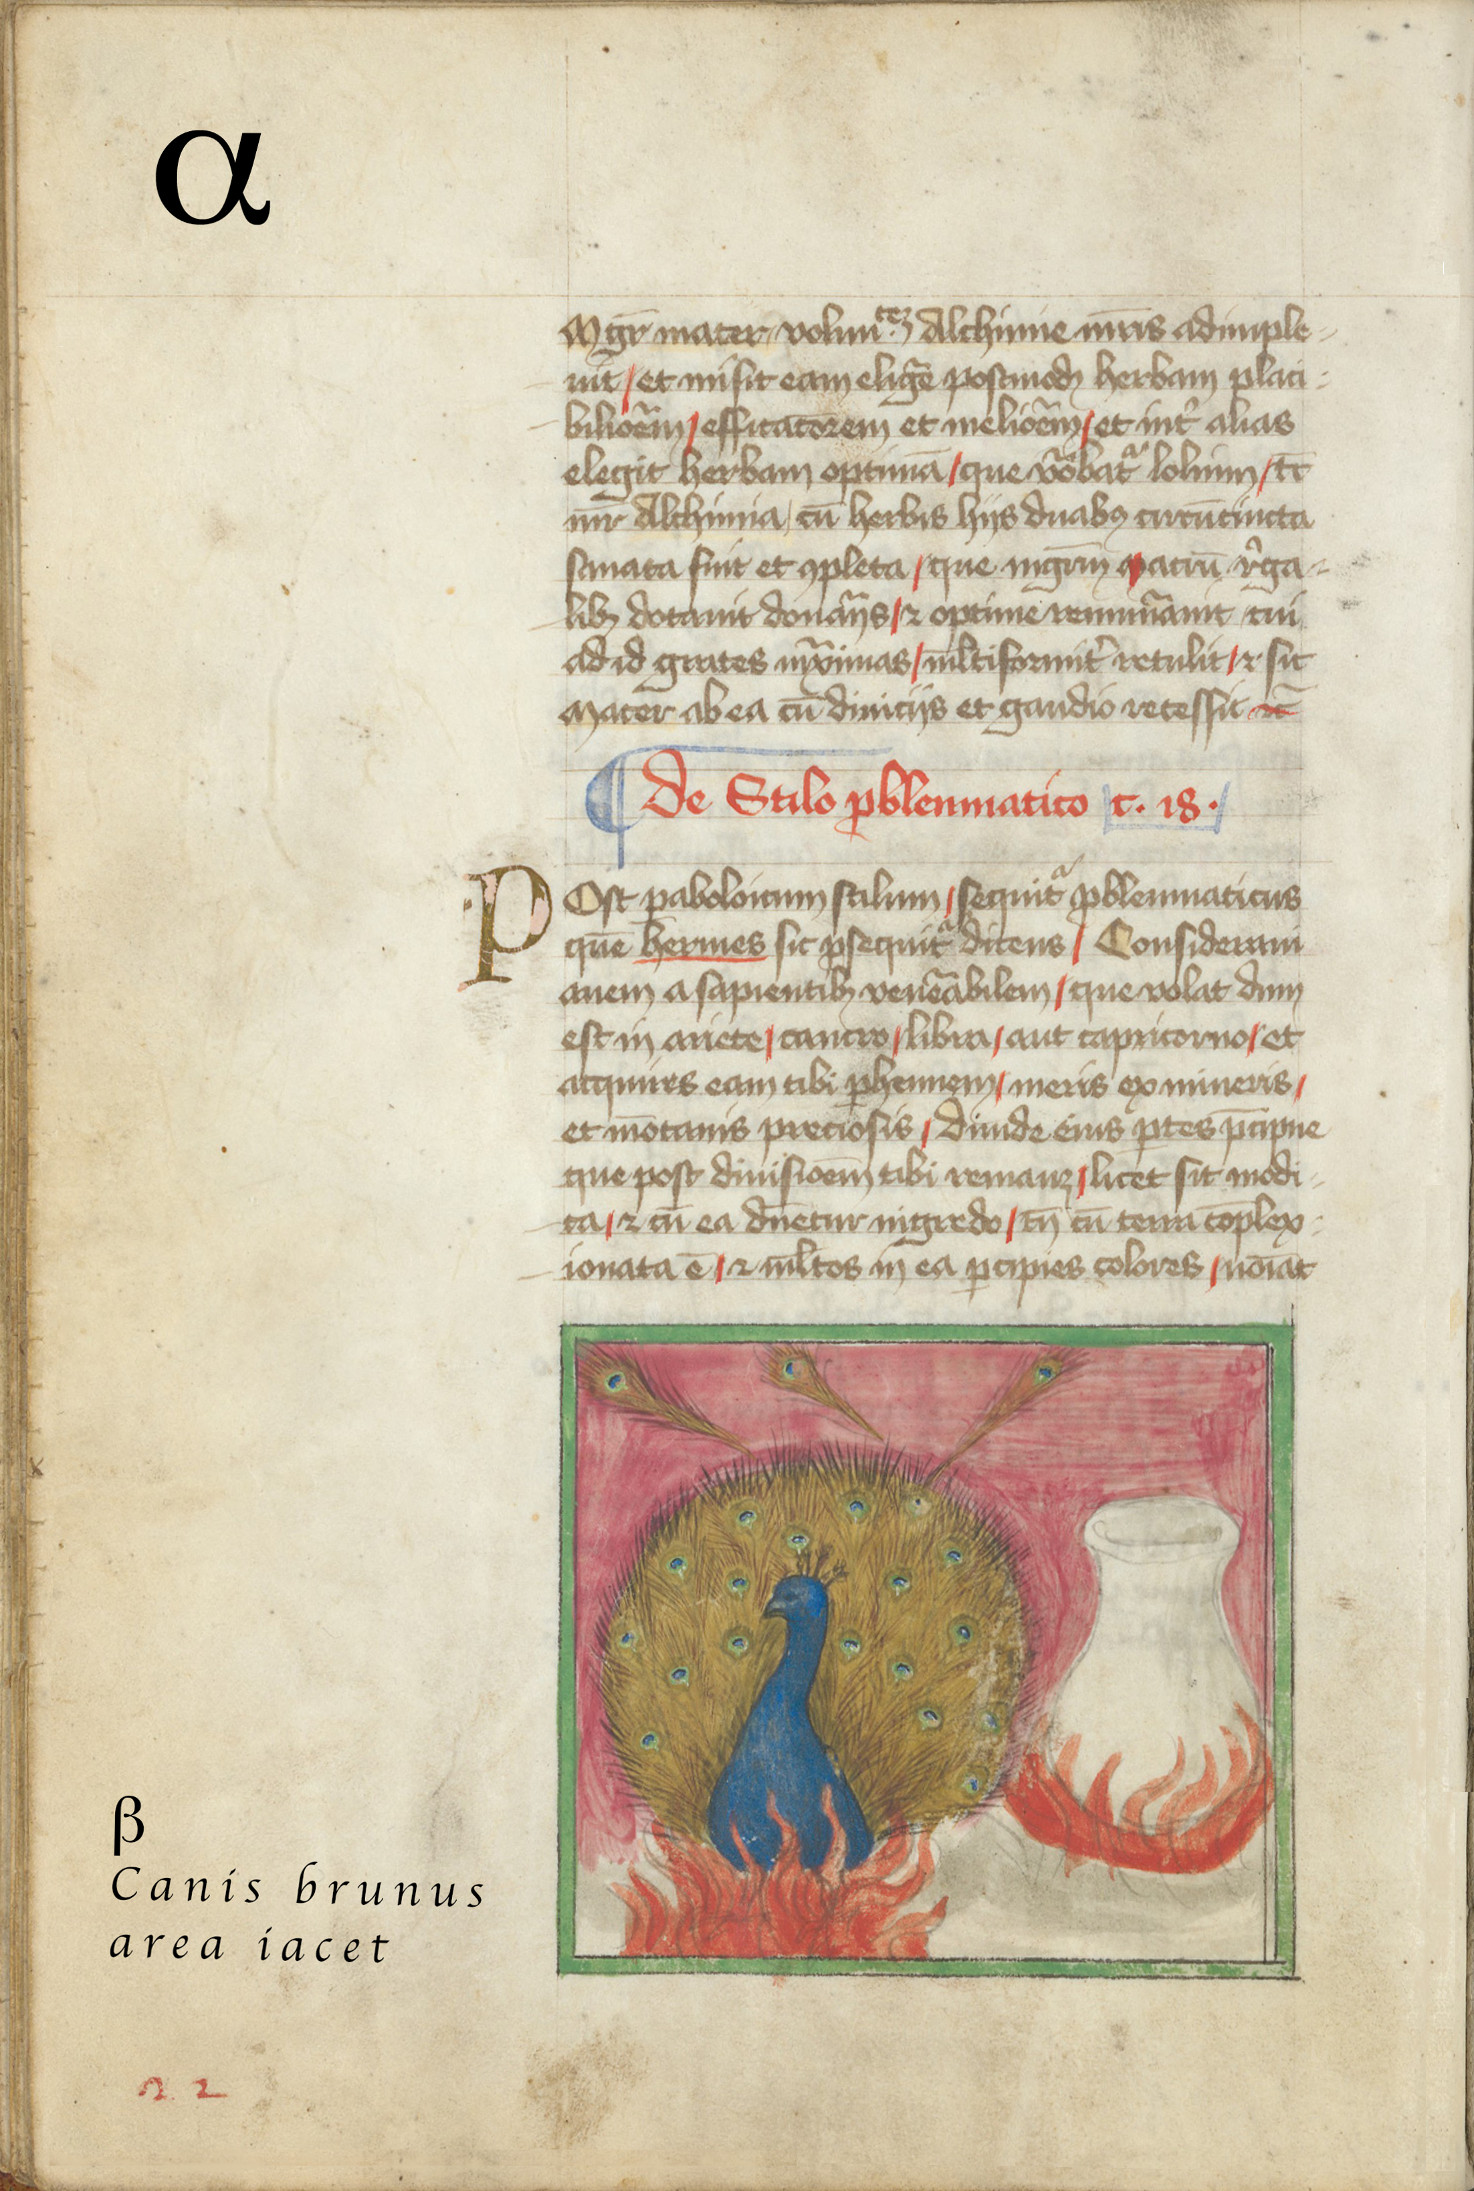 α
Mgr̄ mater volun tꝫ Alchimie nr̄is adimple-
uit / et misit eam elig̃e postmodꝫ herbam placi-
bilioẽm / efficatiorem et melioẽm / et int̾ alias
elegit herbam optimā / que vo͠bat᷑ lolium / tc̄
nr̄ Alchimia / cū herbis hijs duabꝯ circūcincta
sanata fuit et ꝯpleta / que mgr̄m matrū
libꝫ dotauit donar̃ijs / ⁊ optime remun̾auit cui
ad id grates mãximas / ml̄tiformit̾ retulit / ⁊ sic
Mater ab ea cū diuicijs et gaudio recessit ⁊c̄
¶ De Stilo ꝓbleumatico c. 18.
POst ꝑaboloicum stilum / sequit᷑ ꝓbleumaticus
quē hermes sic ꝓsequit᷑ dicens / Consideraui
auem a sapientibꝫ ven̾abilem / que volat dum
est in ariete / cancro / libra / aut capricorno / et
acquires eam tibi ꝑhennem / meris ex mineris /
et mōtanis preciosis / Diuide eius ꝑtes p̄cipue
que post diuisioēm tibi remanꝫ / licet sit modi-
ca / ⁊ cū ea dn̄etur nigredo / tn̄ cū terra cōplex-
ionata ē / ⁊ ml̄tos in ea ꝑcipies colores / noīat
β
Canis brunus
area iacet
22